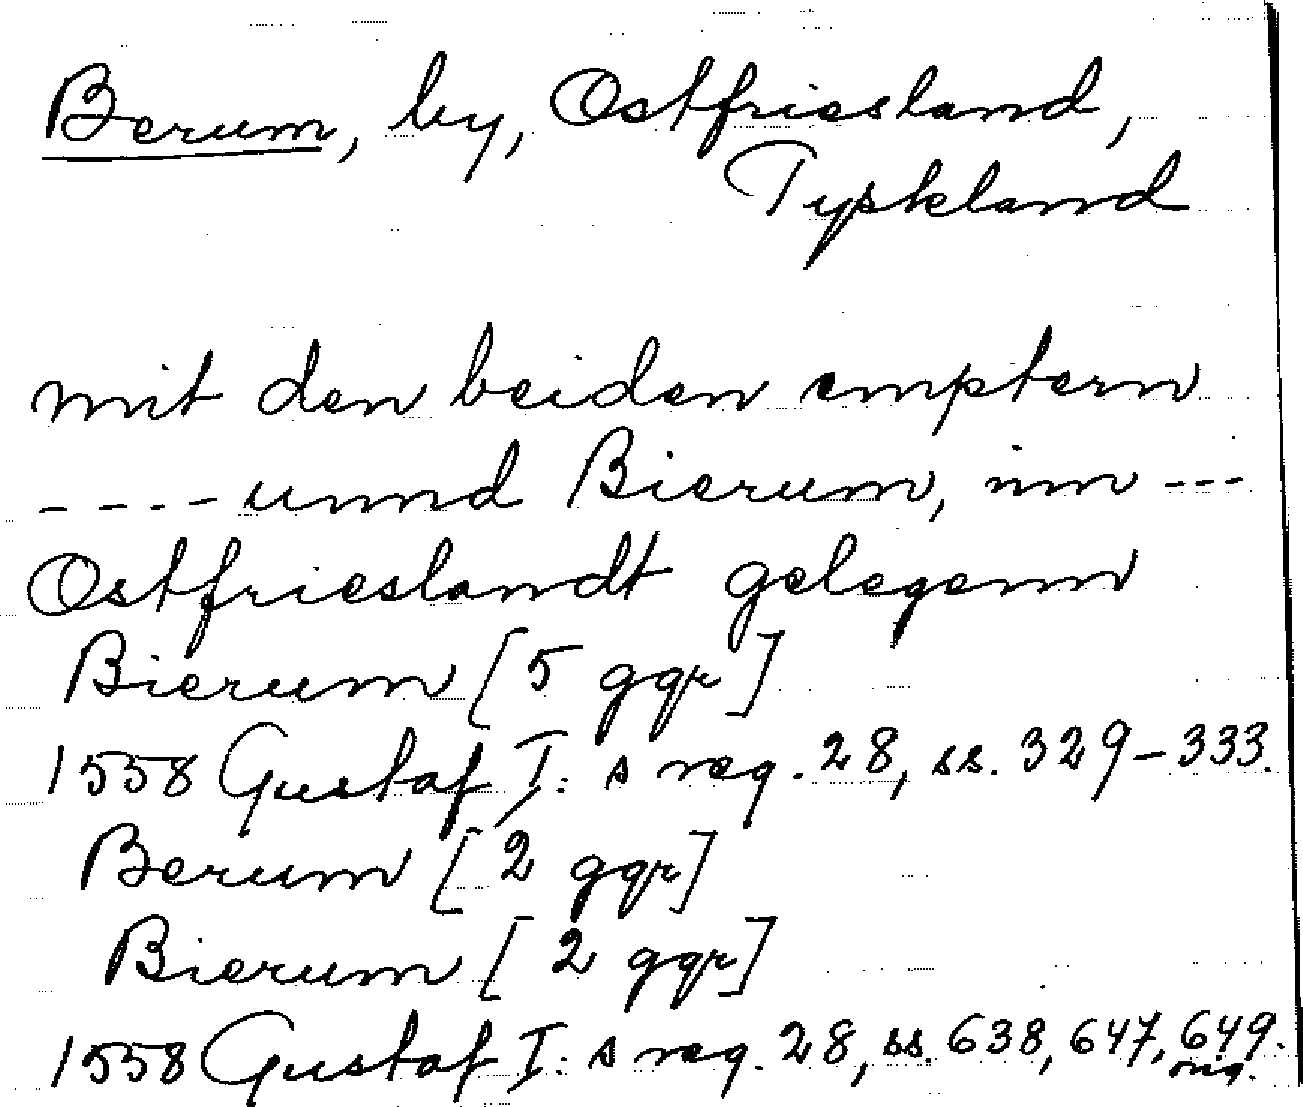 Berum, by, Ostfriesland,
Tyskland
mit den beiden emptern
---- unnd Bierum, inn ---
Ostfrieslandt gelegenn
Bierum [5 ggr]
1558 Gustaf I: s reg. 28, ss. 329-333.
Berum [2 ggr]
Bierum [2 ggr]
1558 Gustaf I: s reg. 28, ss. 638, 647, 649.
orig.